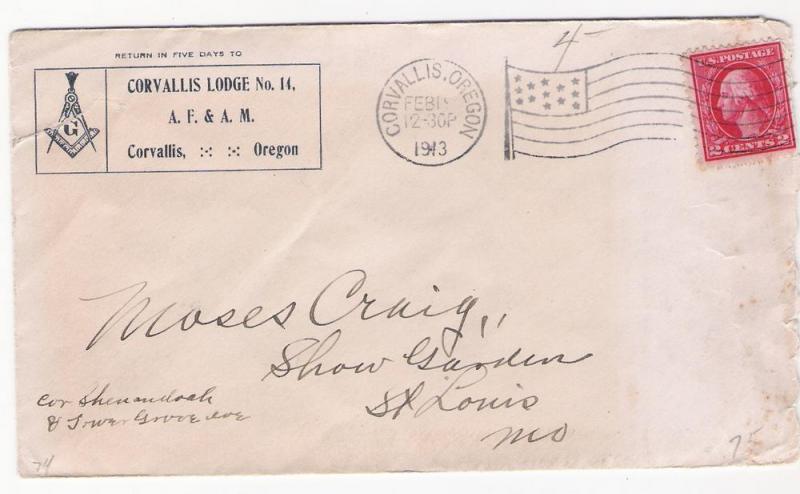 RETURN IN FIVE DAYS TO
CORVALLIS LODGE No. 14,
A. F. & A. M.
Corvallis, Oregon
G
CORVALLIS, OREGON
FEB
12-30P
1913
4-
U.S. POSTAGE
2 CENTS 2
Moses Craig,
Show Garden
St Louis
Mo
Cor Shenandoah
& Tower Grove Ave
74
75